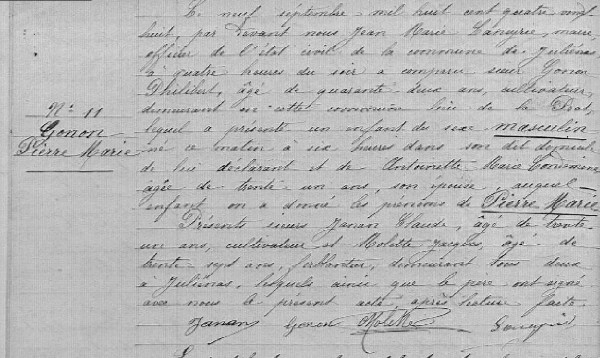 Le neuf septembre mil huit cent quatre vingt
huit, par devant nous Jean Marie, maire,
officier de l'état civil de la commune de Juliénas
à quatre heures du soir a comparu sieur Gonon
Philibert, âgé de quarante deux ans, cultivateur,
demeurant en cette commune lieu de la
lequel a présenté un enfant du sexe masculin
né ce matin à six heures dans son dit domicile
de lui déclarant et de Antoinette Marie
âgée de trente un ans, son épouse, auquel
enfant on a donné les prénoms de Pierre Marie
Présents sieurs Janan Claude, âgé de trente
un ans, cultivateur et Molette Jacques, âgé de
trente sept ans, ferblantier, demeurant tous deux
à Juliénas, lesquels ainsi que le père ont signé
avec nous le présent acte, après lecture faite.
Janan Gonon Molette
N° 11
Gonon
Pierre Marie